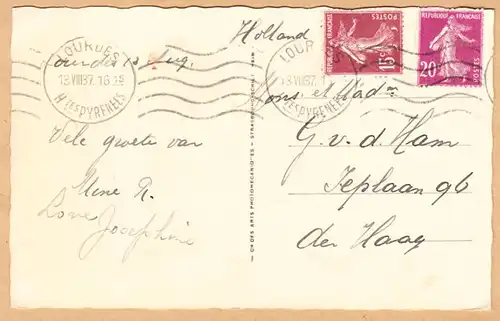 Holland
LOURDES
13 VIII 37. 16 15
Hᵗᵉˢ PYRENEES
Lourdes 13 Aug.
Vele groete van
Mine R.
Josephine
CIE DES ARTS PHOTOMECANIQUES - STRASBOURG
POSTES
REPUBLIQUE FRANÇAISE
15c
REPUBLIQUE FRANÇAISE
20c
POSTES
LOUR
13 VIII 37. 1
Hᵗᵉˢ PYRENEES
Mons. et Madᵐ
G. v. d. Ham
Ieplaan 96
den Haag